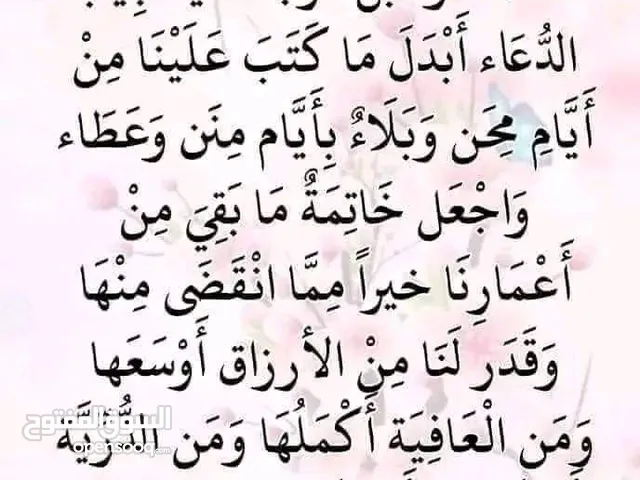 الدُّعَاء أَبْدَلَ مَا كَتَبَ عَلَيْنَا مِنْ
أَيَّامِ مِحَن وَبَلَاءٌ بِأَيَّام مِنَن وَعَطَاء
وَاجْعَل خَاتِمَةٌ مَا بَقِيَ مِنْ
أَعْمَارِنَا خيراً مِمَّا انْقَضَى مِنْهَا
وَقَدَر لَنَا مِنْ الأرزاق أَوْسَعَها
وَمَن الْعَافِيَة أَكْمَلُهَا وَمَن الذُّرِّيَّة
السوق المفتوح
opensooq.com